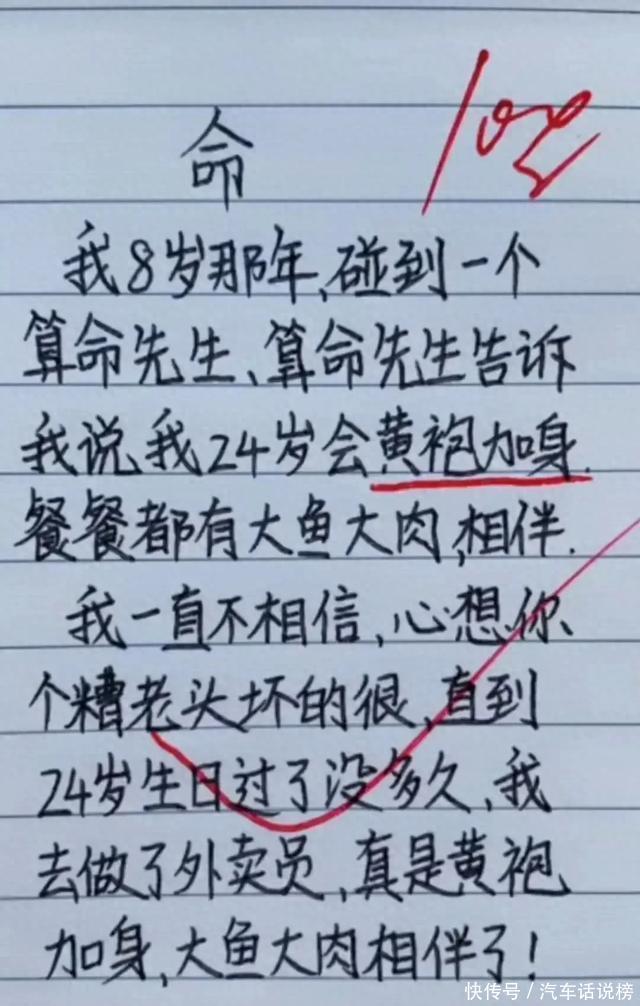 100
命
我8岁那年,碰到一个
算命先生、算命先生告诉
我说我24岁会黄袍加身.
餐餐都有大鱼大肉,相伴.
我一直不相信,心想你、
个糟老头坏的很,直到
24岁生日过了没多久,我
去做了外卖员,真是黄袍
加身,大鱼大肉相伴了!
快传号/汽车话说榜